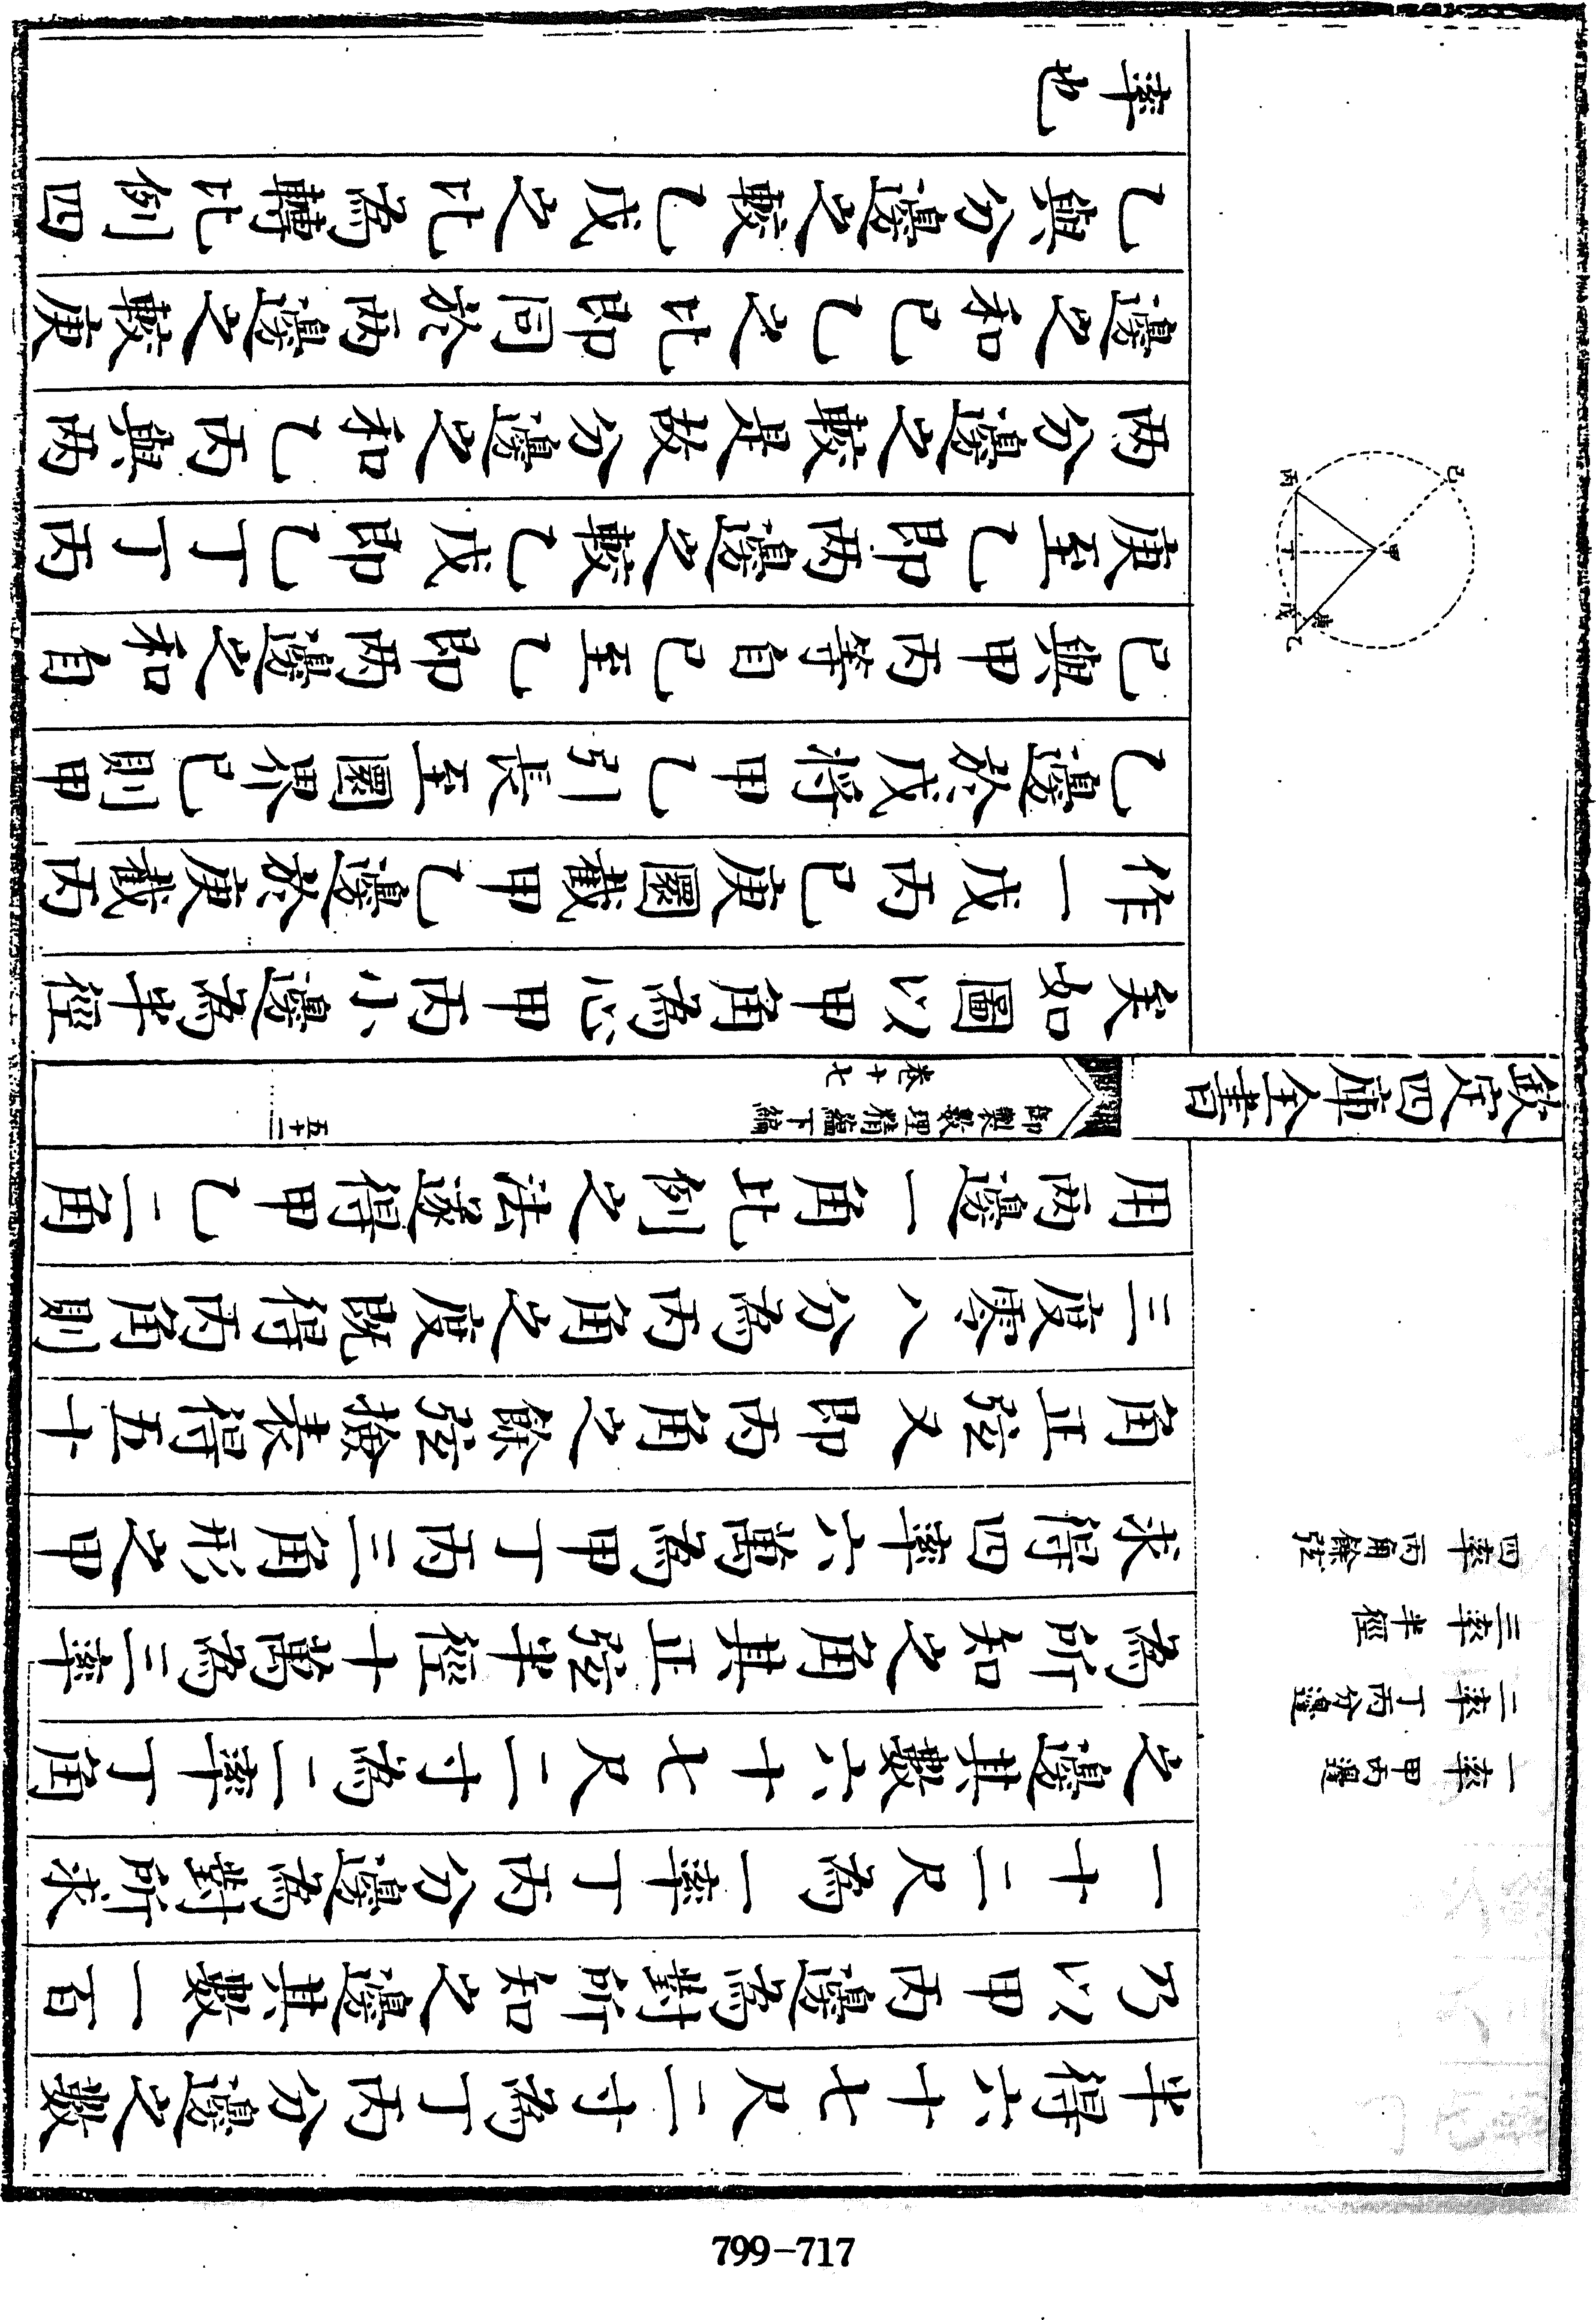 一率 甲丙邊
二率 丁丙分邊
三率 半徑
四率 丙角餘弦
半得六十七尺二寸為丁丙分邊之數
乃以甲丙邊為對所知之邊其數一百
一十二尺為一率丁丙分邊為對所求
之邊其數六十七尺二寸為二率丁角
為所知之角其正弦半徑十萬為三率
求得四率六萬為甲丁丙三角形之甲
角正弦又即丙角之餘弦檢表得五十
三度零八分為丙角之度既得丙角則
用兩邊一角比例之法遂得甲乙二角
欽定四庫全書
御製數理精蘊下編
卷十七
五十二
己
甲
庚
丙
丁
戊
乙
矣如圖以甲角為心甲丙小邊為半徑
作一戊丙己庚圜截甲乙邊於庚截丙
乙邊於戊將甲乙引長至圜界己則甲
己與甲丙等自己至乙即兩邊之和自
庚至乙即兩邊之較乙戊即乙丁丁丙
兩分邊之較是故分邊之和乙丙與兩
邊之和己乙之比即同於兩邊之較庚
乙與分邊之較乙戊之比為轉比例四
率也
799-717